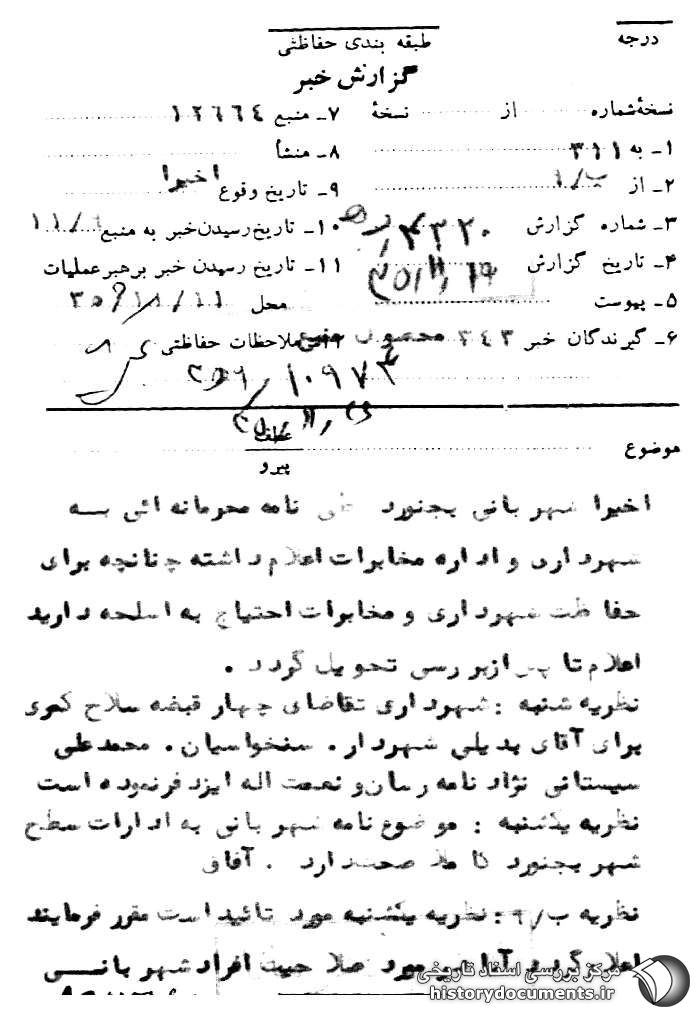 درجه
طبقه بندی حفاظتی
گزارش خبر
نسخهٔ شماره از نسخهٔ
۷ـ منبع ۱۲۶۶۴
۱ـ به ۳۱۱
۸ـ منشأ
۲ـ از
۹ـ تاریخ وقوع اخیرا
۳ـ شماره گزارش
۱۰ـ تاریخ رسیدن خبر به منبع
۴ـ تاریخ گزارش
۱۱ـ تاریخ رسیدن خبر برهبر عملیات
محل
۵ـ پیوست
۶ـ گیرندگان خبر ۳۴۳
ملاحظات حفاظتی
عطف
پیرو
موضوع
اخیرا شهربانی بجنورد طی نامه محرمانه ائی به
شهرداری و اداره مخابرات اعلام داشته چنانچه برای
حفاظت شهرداری و مخابرات احتیاج به اسلحه دارید
اعلام تا پس ازبررسی تحویل گردد .
نظریه شنبه : شهرداری تقاضای چهار قبضه سلاح کمری
برای آقای بدیلی شهردار . سنخواسیان . محمدعلی
سیستانی نژاد نامه رسان و نعمت اله ایزد فرنموده است
نظریه یکشنبه : موضوع نامه شهربانی به ادارات سطح
شهر بجنورد کاملا صحت دارد . آفاق
نظریه ب/۶ : نظریه یکشنبه مورد تائید است مقرر فرمایند
اعلام گردد آیا در مورد صلاحیت افراد شهربانی
مرکز بررسی اسناد تاریخی
historydocuments.ir